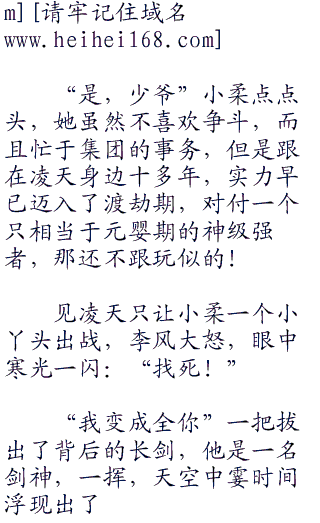 m][请牢记住域名
www.heihei168.com]
“是，少爷”小柔点点
头，她虽然不喜欢争斗，而
且忙于集团的事务，但是跟
在凌天身边十多年，实力早
已迈入了渡劫期，对付一个
只相当于元婴期的神级强
者，那还不跟玩似的！
见凌天只让小柔一个小
丫头出战，李风大怒，眼中
寒光一闪：“找死！”
“我变成全你”一把拔
出了背后的长剑，他是一名
剑神，一挥，天空中霎时间
浮现出了